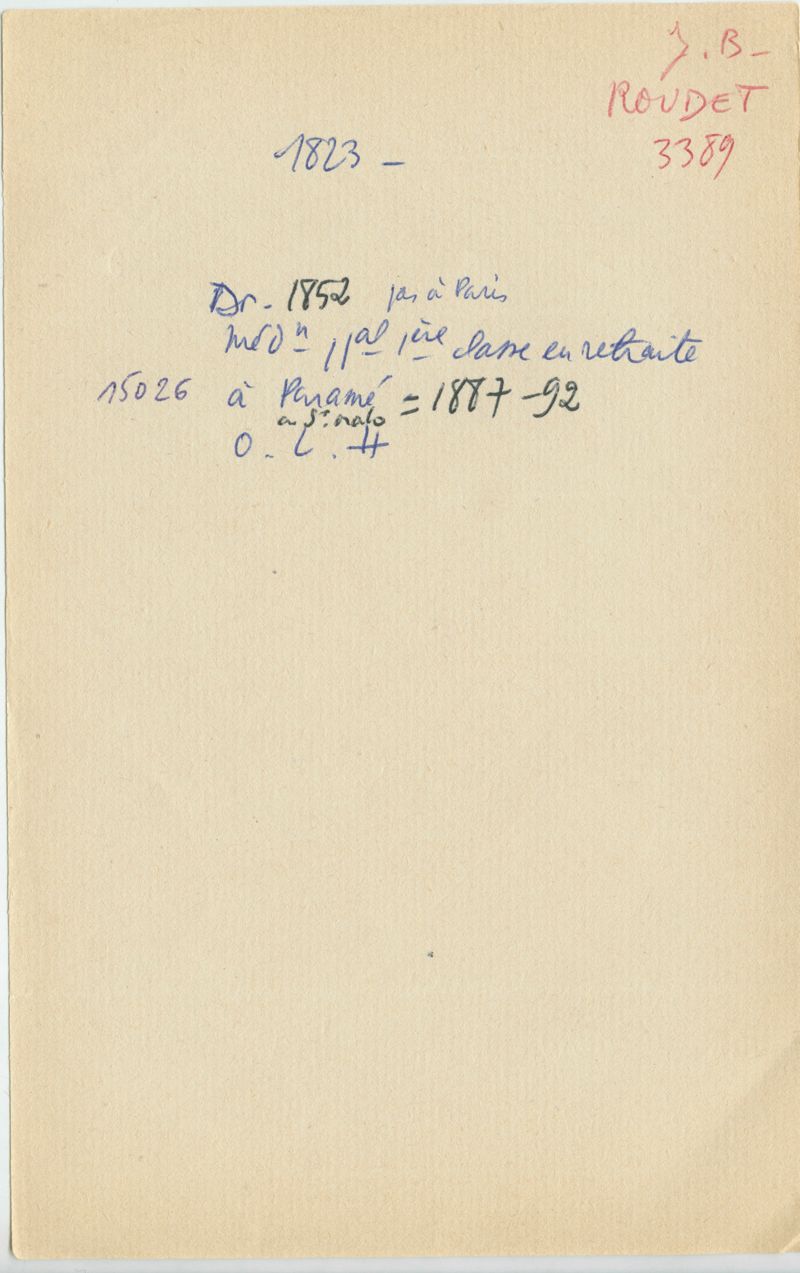 J. B -
ROUDET
3389
1823 -
Dr. 1852 pas à Paris
Médn ppal 1ère classe en retraite
15026 à Paramé = 1887-92
ou St. malo
O. L. H